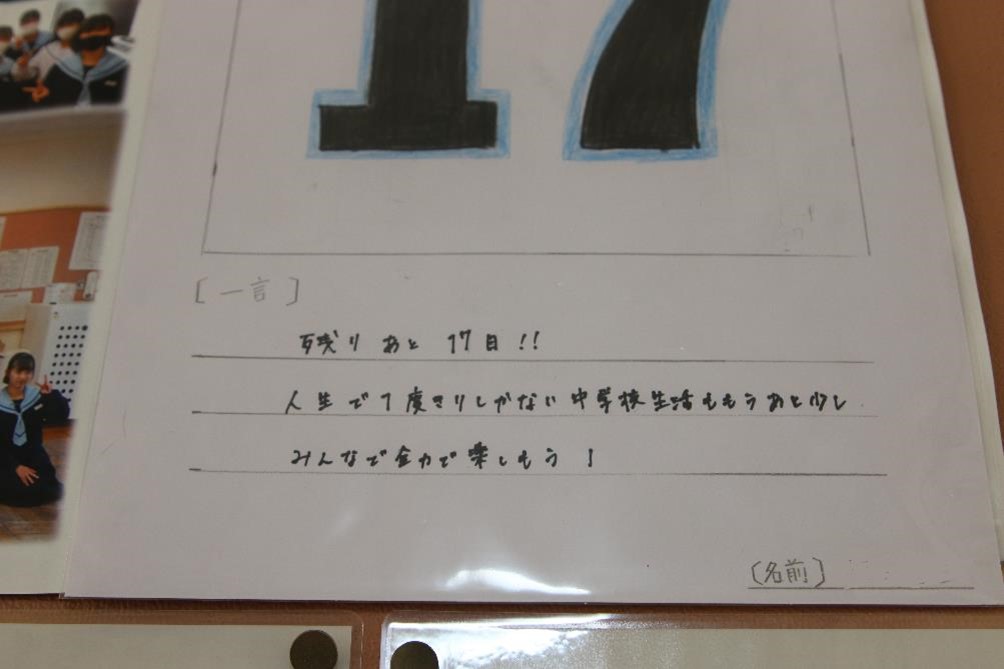 17
[一言]
残りあと 17日!!
人生で1度きりしかない中学校生活ももうあと少し
みんなで全力で楽しもう!
[名前]